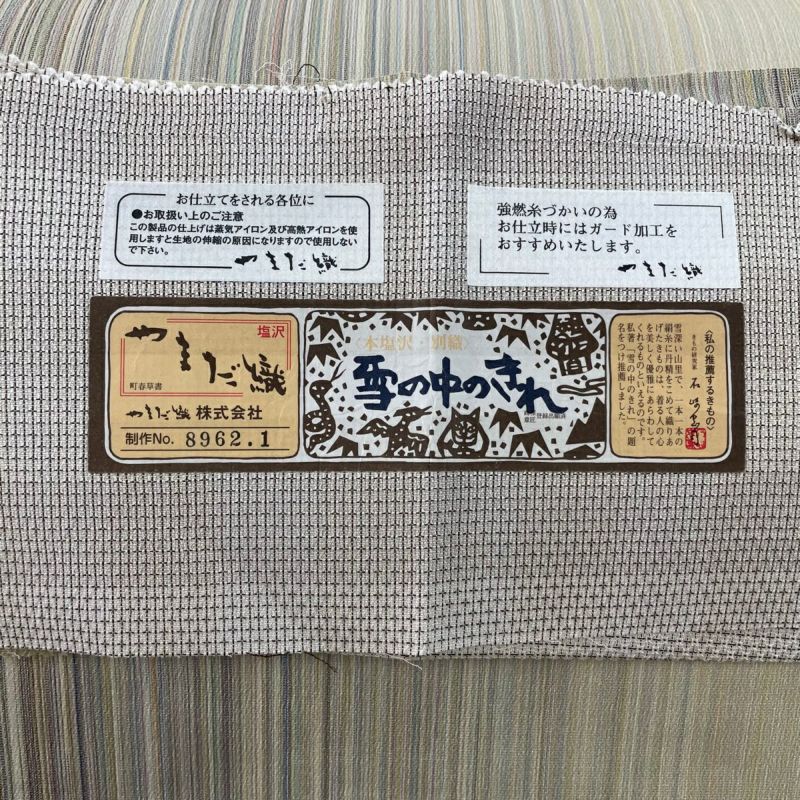 お仕立てをされる各位に
●お取扱い上のご注意
この製品の仕上げは蒸気アイロン及び高熱アイロンを使
用しますと生地の伸縮の原因になりますので使用しない
で下さい。
やまだ織
強燃糸づかいの為
お仕立時にはガード加工を
おすすめいたします。
やまだ織
塩沢
やまだ織
町春草書
やまだ織株式会社
制作No. 8962.1
〈本塩沢・別織〉
雪の中のきれ
登録出願済
〈私の推薦するきもの〉
きもの研究家
雪深い山里で、一本一本の
絹糸に丹精をこめて織りあ
げたきものは、着る人の心
を美しく優雅にあらわして
くれるものといえるのです。
私著「雪の中のきれ」の題
名をつけ推薦しました。